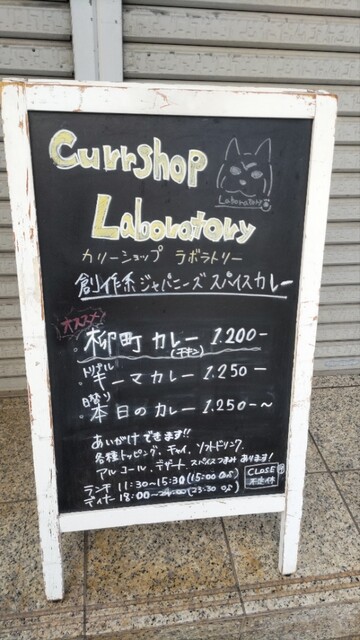 Currshop
Laboratory
Laboratory
カリーショップ ラボラトリー
創作系ジャパニーズスパイスカレー
オススメ!
柳町カレー 1.200-
(チキン)
キーマカレー 1.250-
日替り
本日のカレー 1.250-~
あいがけできます!!
各種トッピング、チャイ、ソフトドリンク、
アルコール、デザート、スパイスつまみあります!
ランチ 11:30~15:30(15:00 OS)
ディナー 18:00~24:00(23:30 OS)
CLOSE
不定休